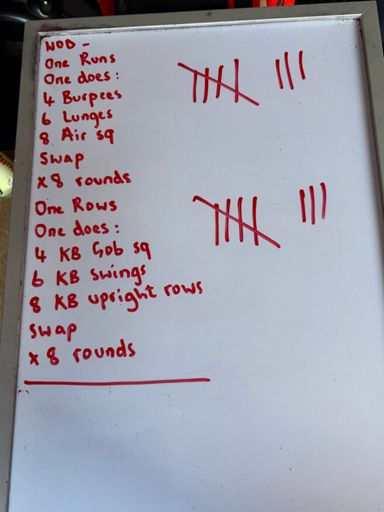 WOD -
One Runs
One does:
4 Burpees
6 Lunges
8 Air sq
Swap
x 8 rounds
One Rows
One does:
4 KB Gob sq
6 KB swings
8 KB upright rows
swap
x 8 rounds